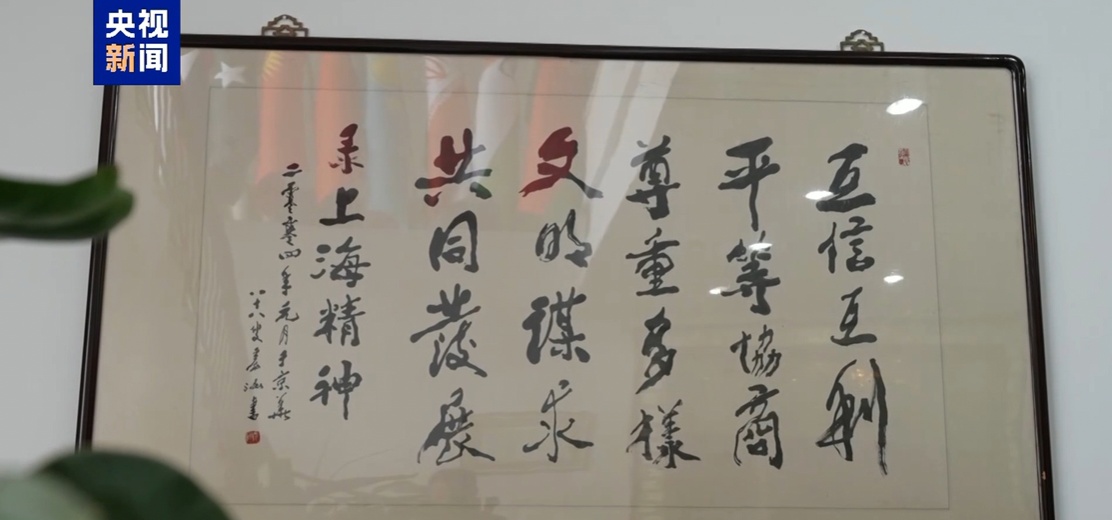 央视
新闻
互信互利
平等協商
尊重多樣
文明謀求
共同發展
录上海精神
二零零四年元月于京華
八十八叟書